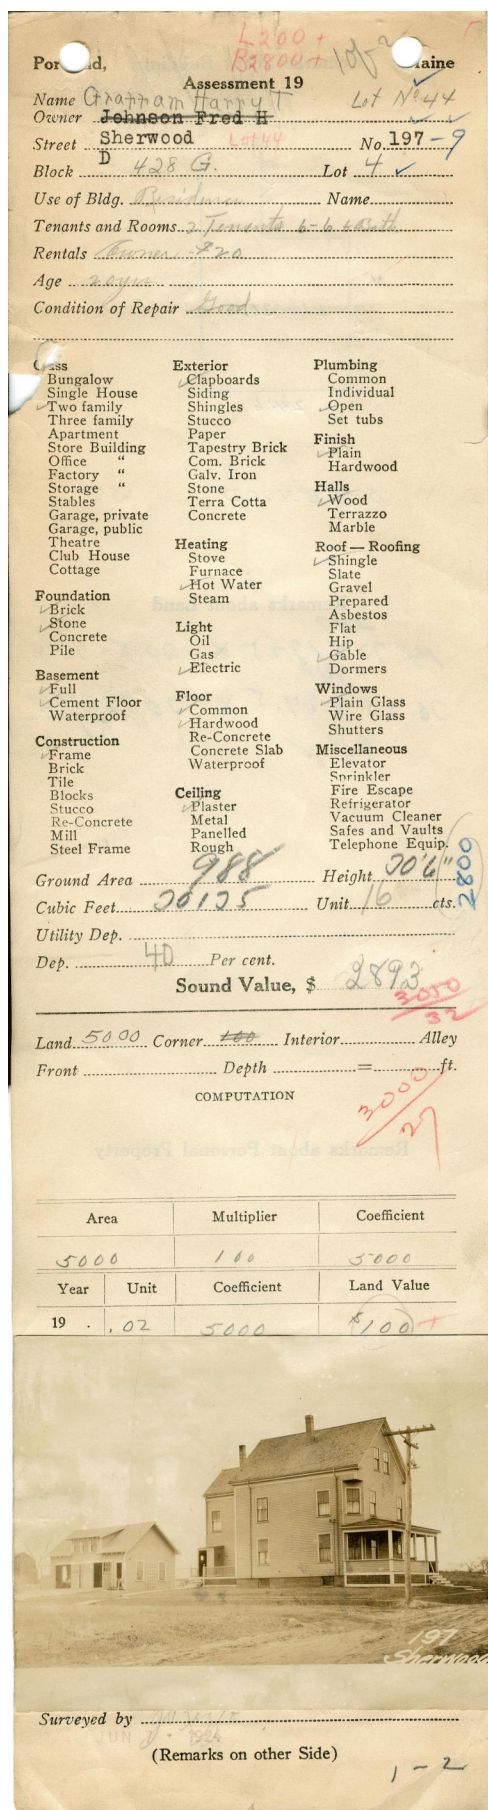 L200+
B2800+ 1 of 2
Por nd, aine
Assessment 19
Name Harry T Lot No 44
Owner Johnson Fred H
Street Sherwood Lot 44 No. 197-9
Block D 428 G. Lot 4
Use of Bldg. Residence Name
Tenants and Rooms 2 Tenants 6-6 & Bath
Rentals Owner $20
Age 20 yrs
Condition of Repair Good
Class
Bungalow
Single House
Two family
Three family
Apartment
Store Building
Office "
Factory "
Storage "
Stables
Garage, private
Garage, public
Theatre
Club House
Cottage
Foundation
Brick
Stone
Concrete
Pile
Basement
Full
Cement Floor
Waterproof
Construction
Frame
Brick
Tile
Blocks
Stucco
Re-Concrete
Mill
Steel Frame
Exterior
Clapboards
Siding
Shingles
Stucco
Paper
Tapestry Brick
Com. Brick
Galv. Iron
Stone
Terra Cotta
Concrete
Heating
Stove
Furnace
Hot Water
Steam
Light
Oil
Gas
Electric
Floor
Common
Hardwood
Re-Concrete
Concrete Slab
Waterproof
Ceiling
Plaster
Metal
Panelled
Rough
Plumbing
Common
Individual
Open
Set tubs
Finish
Plain
Hardwood
Halls
Wood
Terrazzo
Marble
Roof — Roofing
Shingle
Slate
Gravel
Prepared
Asbestos
Flat
Hip
Gable
Dormers
Windows
Plain Glass
Wire Glass
Shutters
Miscellaneous
Elevator
Sprinkler
Fire Escape
Refrigerator
Vacuum Cleaner
Safes and Vaults
Telephone Equip.
2800
Ground Area 988 Height
Cubic Feet Unit 16 cts.
Utility Dep.
Dep. 40 Per cent.
Sound Value, $ 2893
3050
32
Land 5000 Corner 100 Interior Alley
Front Depth = ft.
COMPUTATION
3000
27
Remarks about Personal Property
Area Multiplier Coefficient
5000 100 5000
Year Unit Coefficient Land Value
19 . .02 5000 $100+
197
Sherwood
Surveyed by
JUN 1924
(Remarks on other Side)
1-2